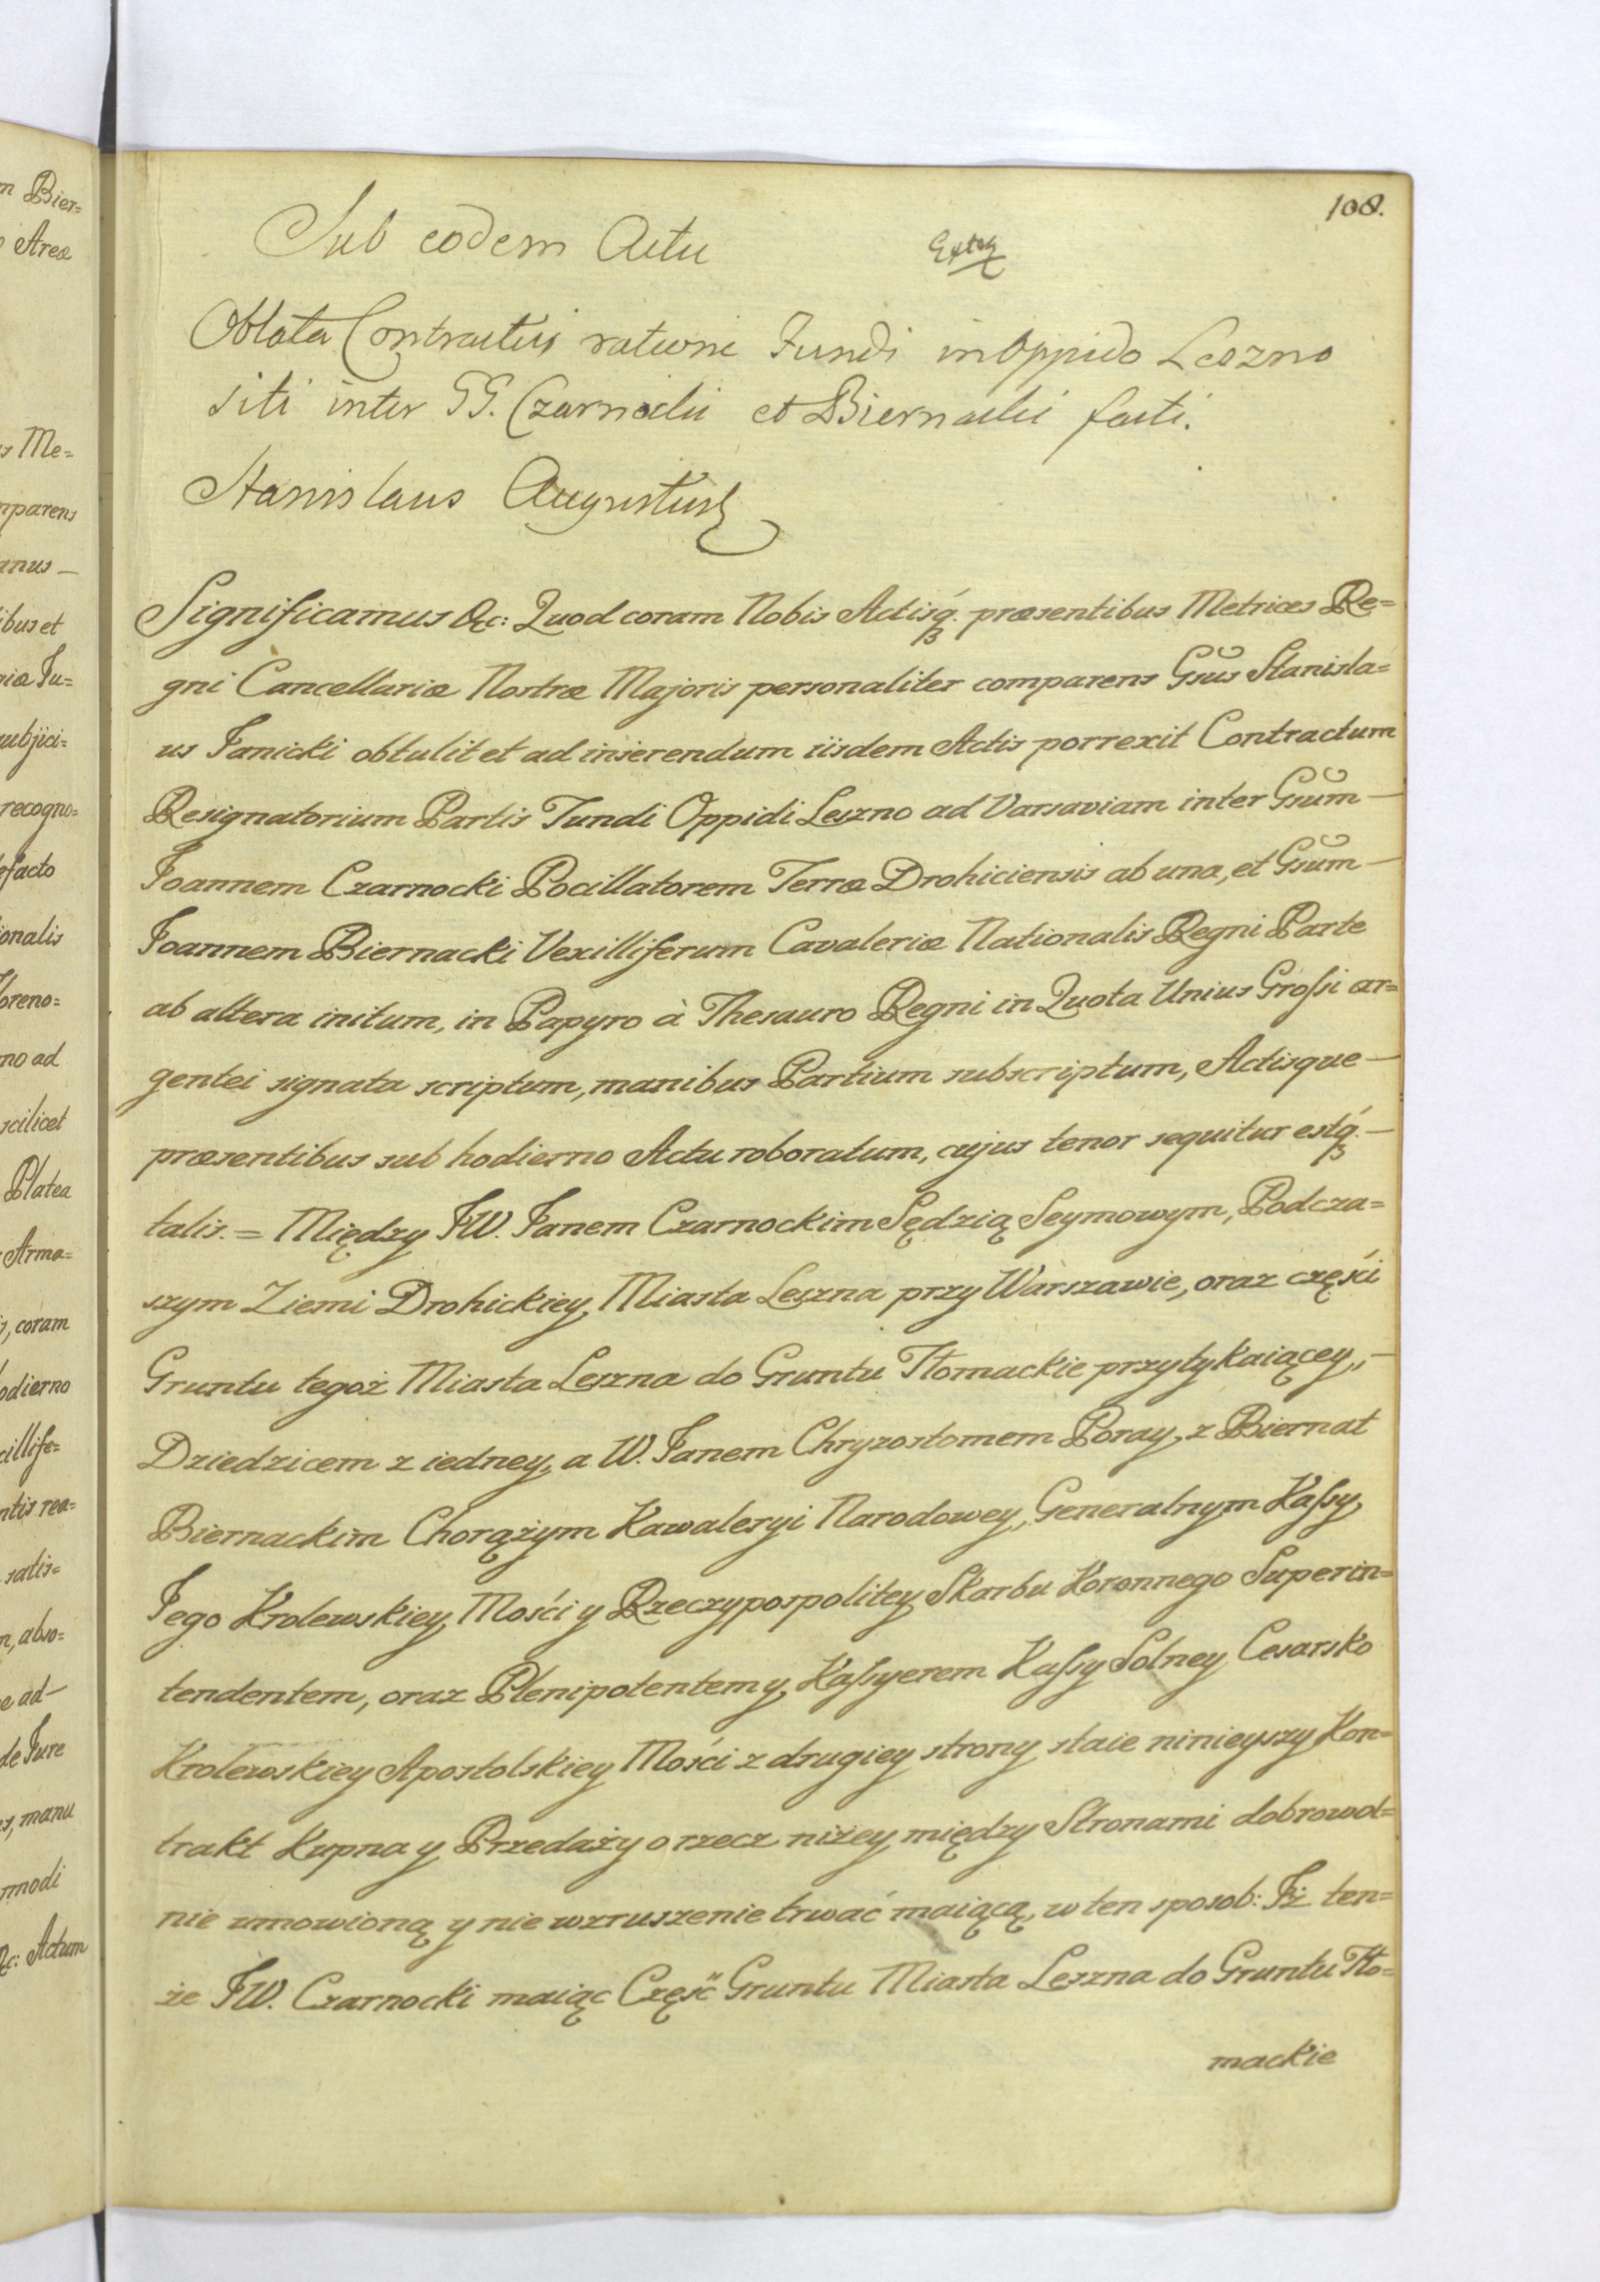 108.
Sub eodem Actu
Oblata Contractus ratione Fundi in Oppido Leszno
siti inter GG. Czarnocki et Biernacki facti.
Stanislaus Augustus
Significamus &c: Quod coram Nobis Actisq́. præsentibus Metrices Re=
gni Cancellariæ Nostræ Majoris personaliter comparens Gsus Stanisla=
us Janicki obtulit et ad inserendum iisdem Actis porrexit Contractum
Resignatorium Partis Fundi Oppidi Leszno ad Varsaviam inter Gsum —
Joannem Czarnocki Pocillatorem Terræ Drohiciensis ab una, et Gsum —
Joannem Biernacki Vexilliferum Cavaleriæ Nationalis Regni Parte
ab altera initum, in Papyro à Thesauro Regni in Quota Unius Grossi ar=
gentei signata scriptum, manibus Partium subscriptum, Actisque —
præsentibus sub hodierno Actu roboratum, cujus tenor sequitur estq́. —
talis. = Między JW. Janem Czarnockim Sędzią Seymowym, Podcza=
szym Ziemi Drohickiey, Miasta Leszna przy Warszawie, oraz części
Gruntu tegoż Miasta Leszna do Gruntu Tłomackie przytykaiącey, —
Dziedzicem z iedney, a W. Janem Chryzostomem Poray, z Biernat
Biernackim Chorążym Kawaleryi Narodowey, Generalnym Kassy
Jego Krolewskiey Mości y Rzeczypospolitey Skarbu Koronnego Superin=
tendentem, oraz Plenipotentem y Kassyerem Kassy Solney Cesarsko
Krolewskiey Apostolskiey Mości z drugiey strony staie ninieyszy Kon=
trakt Kupna y Przedaży o rzecz niżey między Stronami dobrowol=
nie umowioną y nie wzruszenie trwać maiącą, w ten sposob: Iż ten=
że JW. Czarnocki maiąc Część Gruntu Miasta Leszna do Gruntu Tło=
mackie